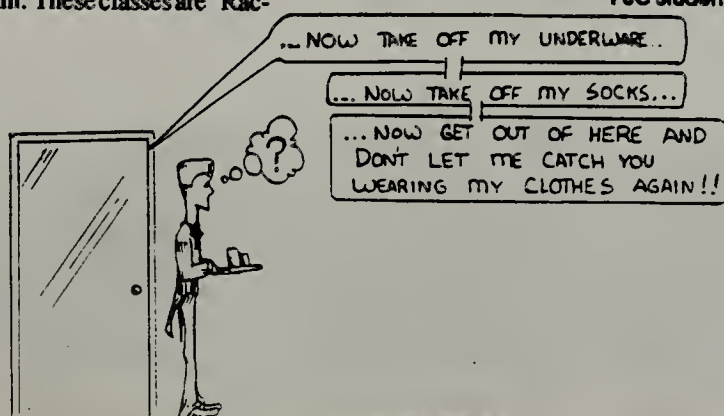 These classes are "Rac-
... NOW TAKE OFF MY UNDERWARE..
... NOW TAKE OFF MY SOCKS...
... NOW GET OUT OF HERE AND
DON'T LET ME CATCH YOU
WEARING MY CLOTHES AGAIN!!
?